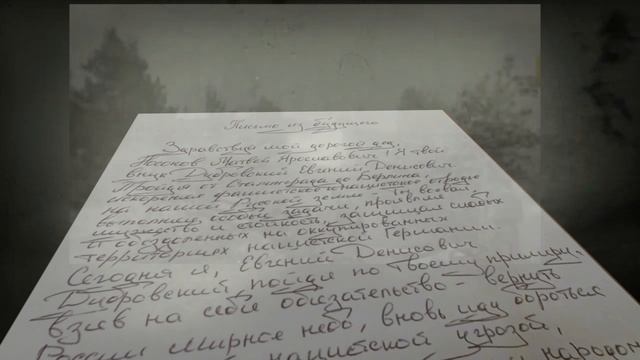 Письмо из будущего
Здравствуй мой дорогой дед,
Матвей Ярославович! Я твой
внук Дубровский Евгений Денисович.
Пройдя от Сталинграда до Берлина,
искореняя фашистское
на нашей Русской земле - Ты воевал,
выполняя особые задачи, проявляя
мужество и стойкость, защищая слабых
и обездоленных на оккупированных
территориях нацистской Германии.
Сегодня я, Евгений Денисович
Дубровский пойдя по твоему примеру,
взяв на себя обязательство - вернуть
России мирное небо, вновь иду бороться
нацистской угрозой,
народом